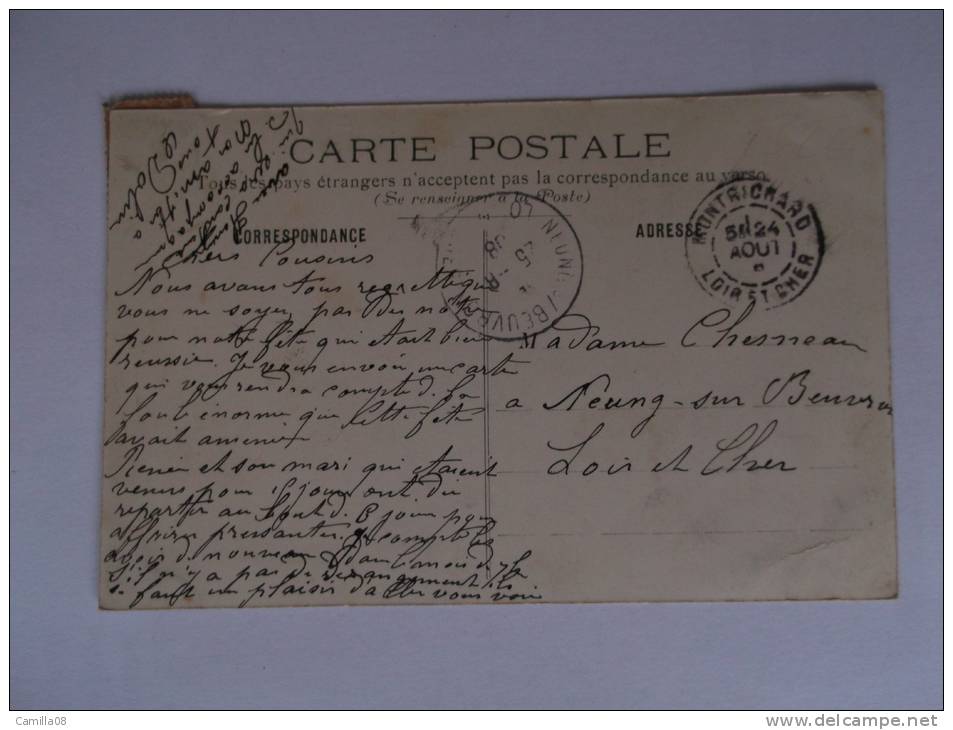 CARTE POSTALE
Tous les pays étrangers n'acceptent pas la correspondance au verso
(Se renseigner à la Poste)
CORRESPONDANCE
ADRESSE
MONTRICHARD
5M 24
AOUT
LOIR ET CHER
NEUNG S BEUVRON
25 -8
08
Chers Cousins
Nous avons tous regretté que
vous ne soyez pas des notre
pour notre fête qui etait bien
reussie. Je vous envoi une carte
qui vous rendra compte d. la
foule énorme que cette fête
avait amené
Renée et son mari qui etaient
venus pour 15 jours ont du
repartir au bout d. 8 jours pour
affaires pressantes, je compte les
avoir d. nouveau dans le mois d. 7bre
S'il n'y a pas de derangement ils
se font un plaisir d'aller vous voir
Madame Chesneau
a Neung-sur Beuvron
Loir et Cher
Camilla08
www.delcampe.net